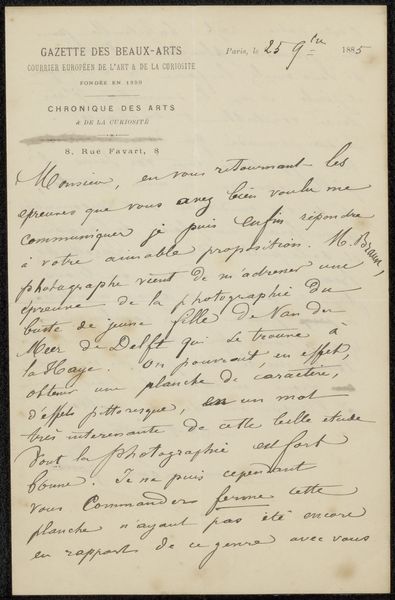 GAZETTE DES BEAUX-ARTS
COURRIER EUROPÉEN DE L'ART & DE LA CURIOSITÉ
FONDÉE EN 1859
CHRONIQUE DES ARTS
& DE LA CURIOSITÉ
8, Rue Favart, 8
Paris, le 25 9bre 1885
Monsieur, en vous retournant les
épreuves que vous avez bien voulu me
communiquer je puis enfin répondre
à votre aimable proposition. M. Braun,
photographe vient de m'adresser une
épreuve de la photographie du
buste de jeune fille de Van der
Meer de Delft qui se trouve à
la Haye. On pourrait, en effet,
obtenir une planche de caractère,
d'effet pittoresque, en un mot
très intéressante de cette belle étude
dont la photographie est fort
bonne. Je ne puis cependant
vous commander ferme cette
planche n'ayant pas été encore
en rapports de ce genre avec vous